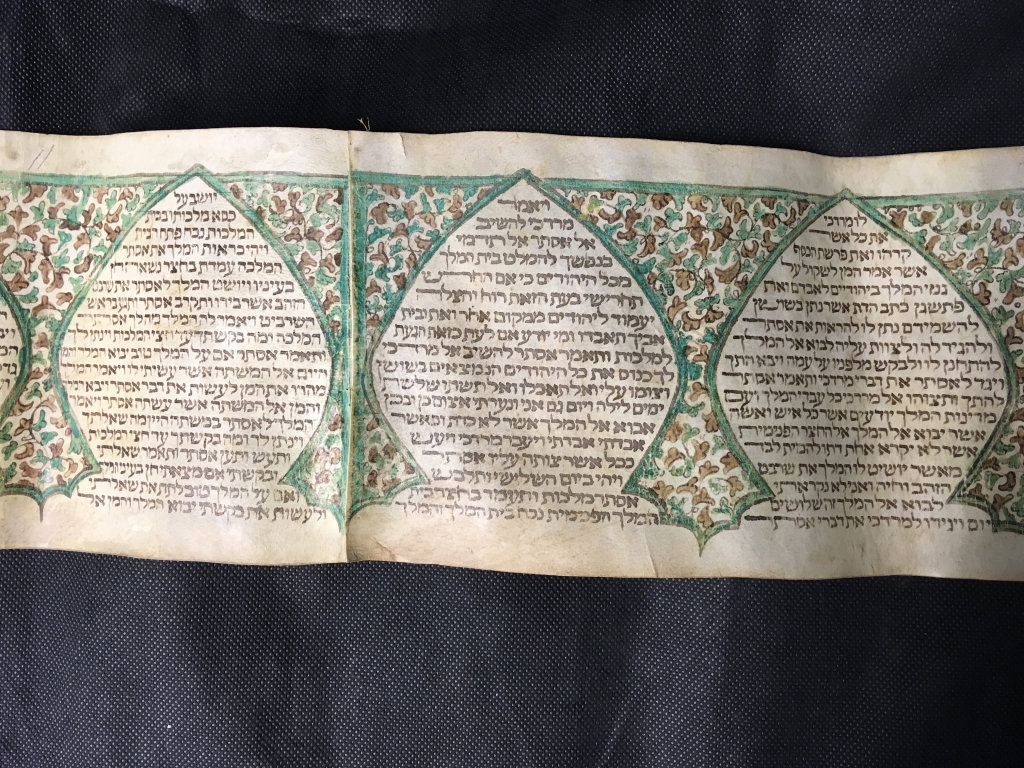 לו מרדכי
את כל אשר
קרהו ואת פרשת הכסף
אשר אמר המן לשקול על
גנזי המלך ביהודיים לאבדם ואת
פתשגן כתב הדת אשר נתן בשושן
להשמידם נתן לו להראות את אסתר
ולהגיד לה ולצוות עליה לבוא אל המלך
להתחנן לו ולבקש מלפניו על עמה ויבא התך
ויגד לאסתר את דברי מרדכי ותאמר אסתר
להתך ותצוהו אל מרדכי כל עבדי המלך ועם
מדינות המלך יודעים אשר כל איש ואשה
אשר יבוא אל המלך אל החצר הפנימית
אשר לא יקרא אחת דתו להמית לבד
מאשר יושיט לו המלך את שרביט
הזהב וחיה ואני לא נקראתי
לבוא אל המלך זה שלושים
יום ויגידו למרדכי את דברי אסתר
ויאמר
מרדכי להשיב
אל אסתר אל תדמי
בנפשך להמלט בית המלך
מכל היהודים כי אם החרש
תחרישי בעת הזאת רוח והצלה
יעמוד ליהודים ממקום אחר ואת ובית
אביך תאבדו ומי יודע אם לעת כזאת הגעת
למלכות ותאמר אסתר להשיב אל מרדכי
לך כנוס את כל היהודים הנמצאים בשושן
וצומו עלי ואל תאכלו ואל תשתו שלשת
ימים לילה ויום גם אני ונערתי אצום כן ובכן
אבוא אל המלך אשר לא כדת וכאשר
אבדתי אבדתי ויעבר מרדכי ויעש
ככל אשר צותה עליו אסתר
ויהי ביום השלישי ותלבש
אסתר מלכות ותעמד בחצר בית
המלך הפנימית נכח בית המלך והמלך
יושב על
כסא מלכותו בבית
המלכות נכח פתח הבית
ויהי כראות המלך את אסתר
המלכה עמדת בחצר נשאה חן
בעיניו ויושט המלך לאסתר את שרביט
הזהב אשר בידו ותקרב אסתר ותגע בראש
השרביט ויאמר לה המלך מה לך אסתר
המלכה ומה בקשתך עד חצי המלכות וינתן לך
ותאמר אסתר אם על המלך טוב יבוא המלך והמן
היום אל המשתה אשר עשיתי לו ויאמר המלך
מהרו את המן לעשות את דבר אסתר ויבא המלך
והמן אל המשתה אשר עשתה אסתר ויאמר
המלך לאסתר במשתה היין מה שאלתך
וינתן לך ומה בקשתך עד חצי המלכות
ותעש ותען אסתר ותאמר שאלתי
ובקשתי אם מצאתי חן בעיני המלך
ואם על המלך טוב לתת את שאלתי
ולעשות את בקשתי יבוא המלך והמן אל